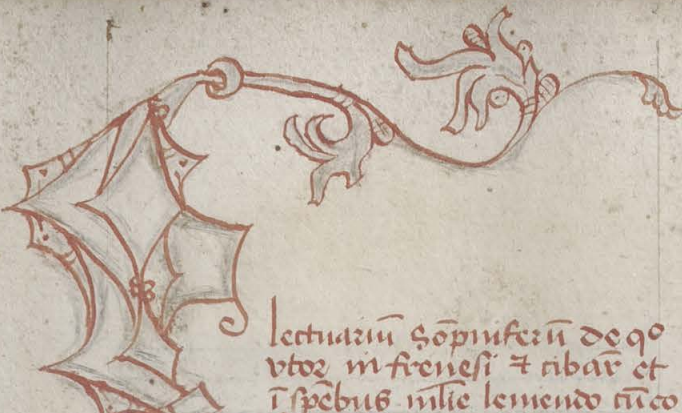 lectuariū Sōpniferū de qo
vtor in frenesi ⁊ cibar̄ et
ī spēbus mlīe leniendo cū co